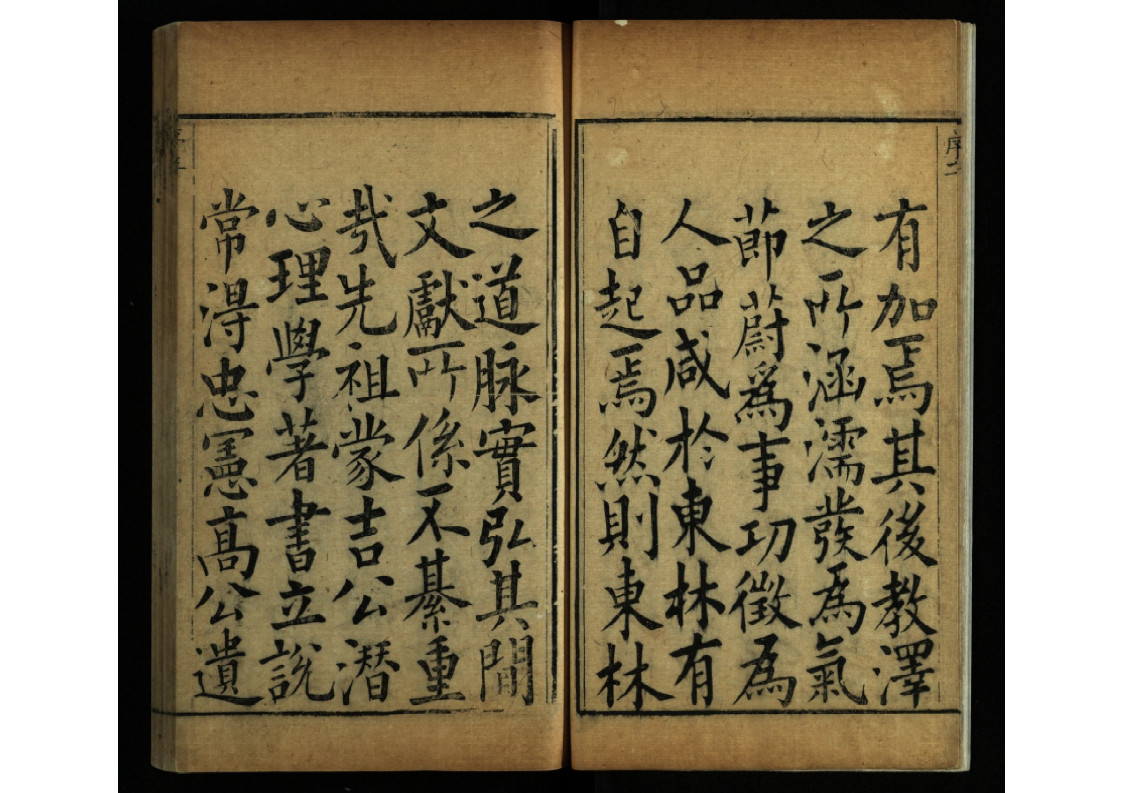 序二
有加焉其後教澤
之所涵濡發爲氣
節蔚爲事功徵爲
人品咸於東林有
自起焉然則東林
之道脉實弘其間
文獻所係不綦重
哉先祖蒙吉公潛
心理學著書立說
常得忠憲高公遺